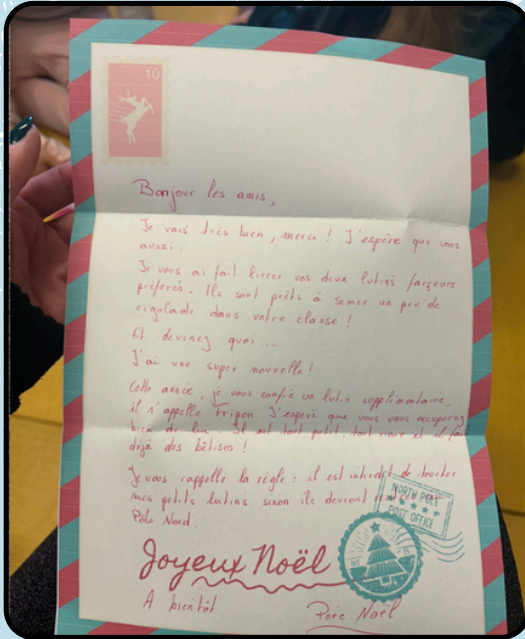 10
Bonjour les amis,
Je vais très bien, merci ! J'espère que vous
aussi.
Je vous ai fait livrer vos deux lutins farceurs
préférés. Ils sont prêts à semer un peu de
rigolade dans votre classe !
Et devinez quoi ...
J'ai une super nouvelle !
Cette année, je vous confie un lutin supplémentaire,
il s'appelle Fripon. J'espère que vous vous occuperez
bien de lui. Il est tout petit tout et il fait
déjà des bêtises !
Je vous rappelle la règle : il est interdit de toucher
mes petits lutins sinon ils devront
Pôle Nord.
NORTH POLE
POST OFFICE
Joyeux Noël
A bientôt
Père Noël